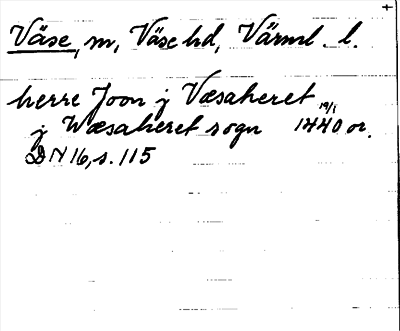 Väse, m, Väse hd, Värml. l.
herre Joon j Væsaheret
j Wæsaheret sogn 19/1 1440 or.
DN 16, s. 115